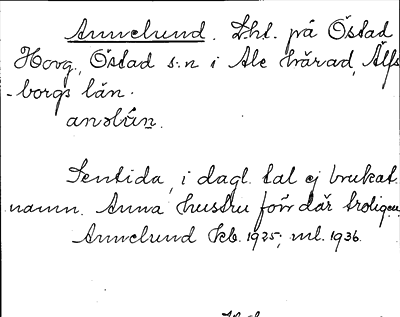 Annelund. Lht. på Östad
Hovg., Östad s:n i Ale härad, Älfs
-borgs län.
Sentida, i dagl. tal ej brukat
namn. Anna hustru förr där troligen.
Annelund kb. 1925, ml. 1936.